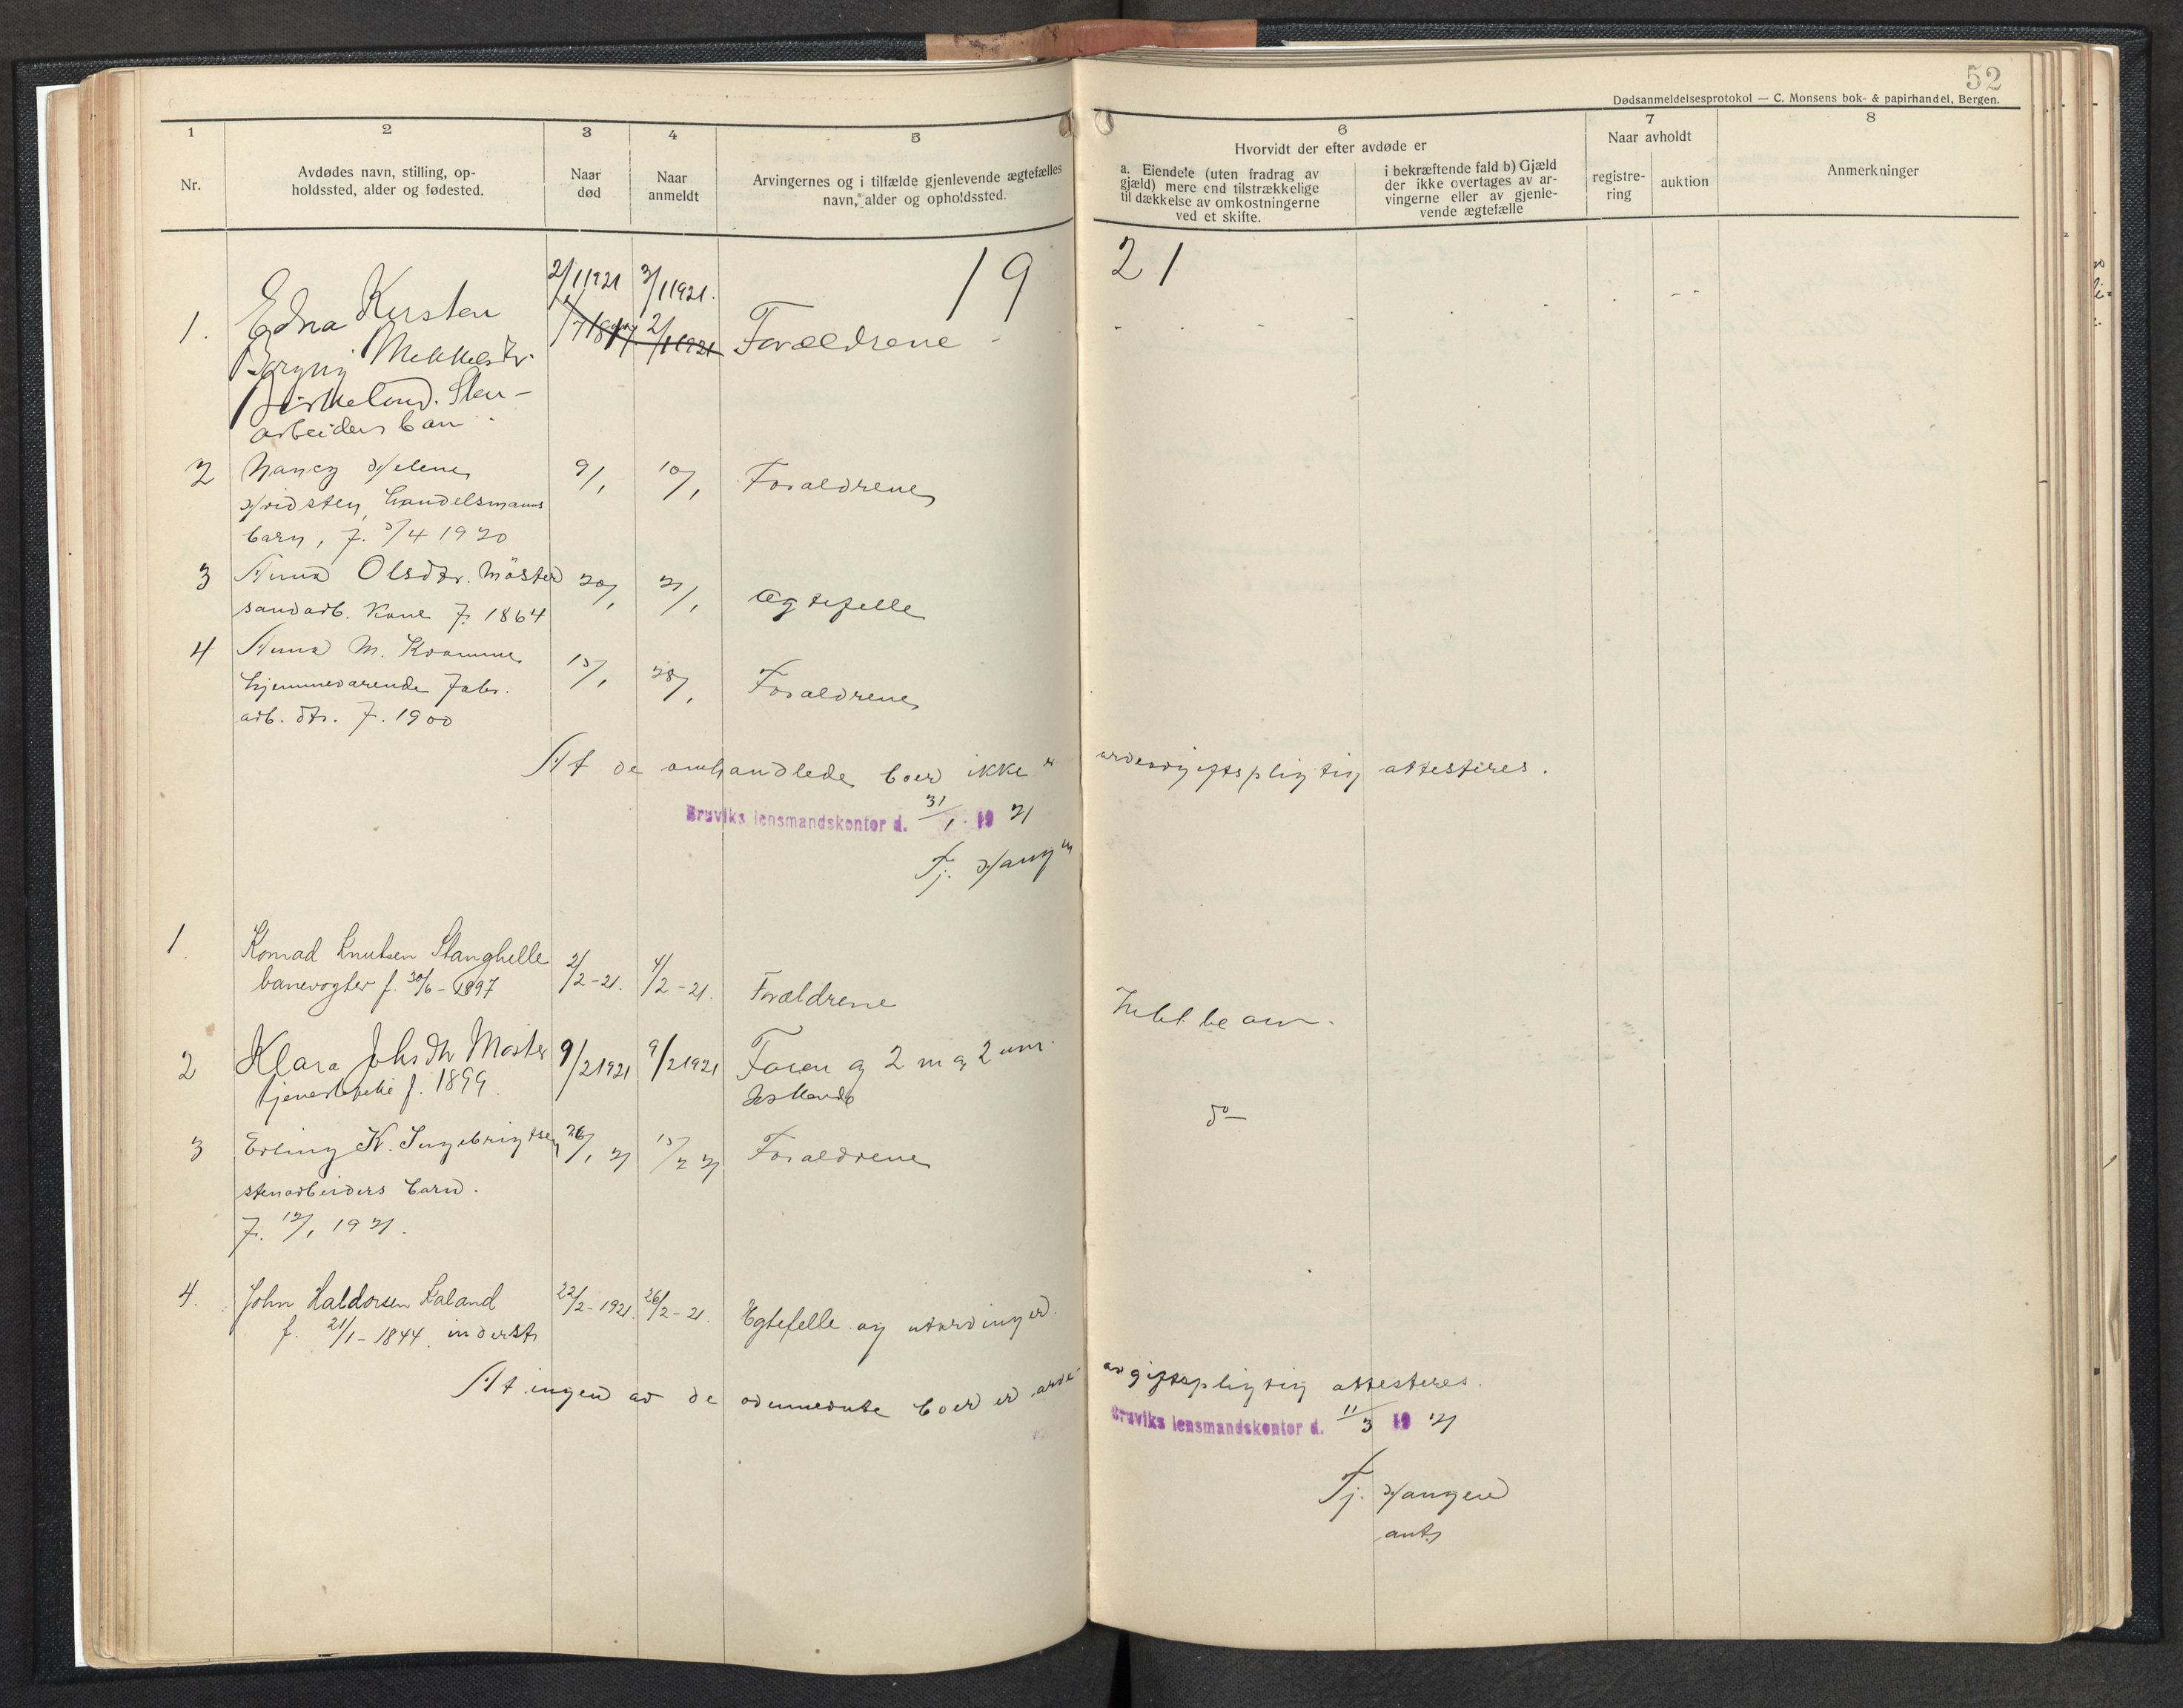 52
Dødsanmeldelsesprotokol — C. Monsens bok- & papirhandel, Bergen.
1 2 3 4 5 6 7 8
Nr.
Avdødes navn, stilling, op-
holdssted, alder og fødested.
Naar
død
Naar
anmeldt
Arvingernes og i tilfælde gjenlevende ægtefælles
navn, alder og opholdssted.
Hvorvidt der efter avdøde er
a. Eiendele (uten fradrag av
gjæld) mere end tilstrækkelige
til dækkelse av omkostningerne
ved et skifte.
i bekræftende fald b) Gjæld
der ikke overtages av ar-
vingerne eller av gjenle-
vende ægtefælle
Naar avholdt
registre-
ring
auktion
Anmerkninger
19 21
1. Edna Kirsten 2/1 1921 3/1 1921. Forældrene
Borgny Mikkelsdtr. 2/1 1921
Birkeland. Sten-
arbeiders barn
2 Nancy Helene 9/1 10/1 Forældrene
Hvidsten, handelsmanns
barn, f. 3/4 1920
3 Anna Olsdtr. Møster 20/1 21/1 Ægtefelle
sandarb. kone f. 1864
4 Anna M. Kvamme 15/1 28/1 Forældrene
hjemmeværende fabr.
arb. dtr. f. 1900
At de omhandlede boer ikke er arveavgiftspligtig attesteres.
Bruviks lensmandskontor d. 31/1 19 21
Fj. Haugen
1. Konrad Knutsen Stanghelle 2/2-21. 4/2-21. Forældrene
banevogter f. 30/6-1897
2 Klara Johsdtr Møster 9/2 1921 9/2 1921 Faren og 2 m og 2 um.
tjenestepike f. 1899 søskende
do
3 Erling K. Ingebrigtsen 26/1 21 15/2 21 Forældrene
stenarbeiders barn.
f. 12/1 1921.
4. John Haldorsen Kaland 22/2-1921. 26/2-21. Egtefelle og utarvinger.
f. 21/1-1844. inderst
At ingen av de ovennevnte boer er arveavgiftspligtig attesteres.
Bruviks lensmandskontor d. 11/3 19 21
Fj. Haugen